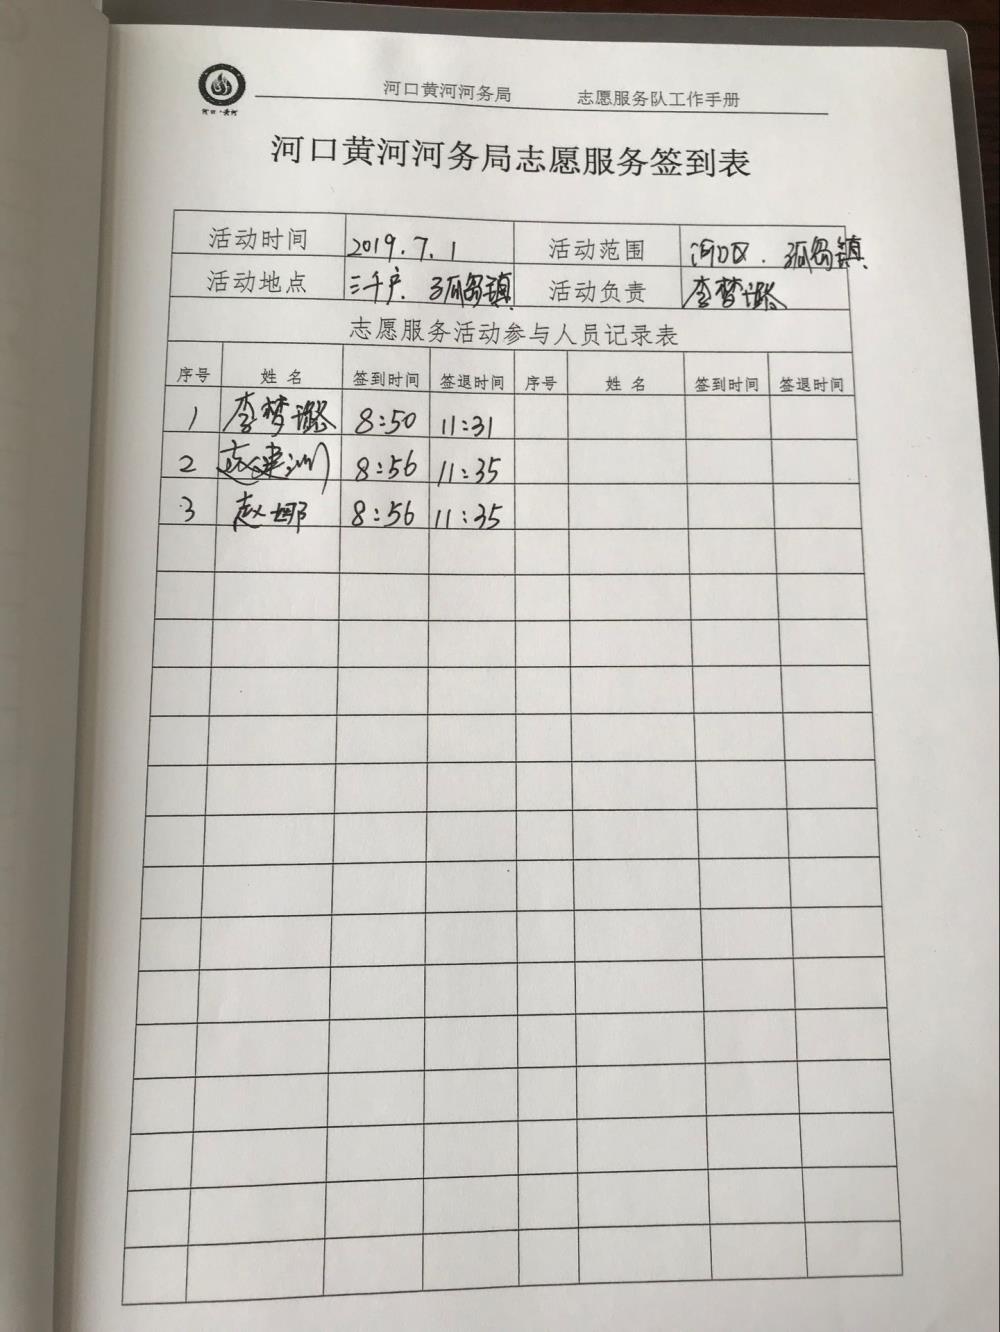 河口·黄河
河口黄河河务局 志愿服务队工作手册
河口黄河河务局志愿服务签到表
活动时间 2019.7.1 活动范围 河口区.孤岛镇
活动地点 三千户.孤岛镇 活动负责 李梦璐
志愿服务活动参与人员记录表
序号 姓名 签到时间 签退时间 序号 姓名 签到时间 签退时间
1 李梦璐 8:50 11:31
2 8:56 11:35
3 赵娜 8:56 11:35